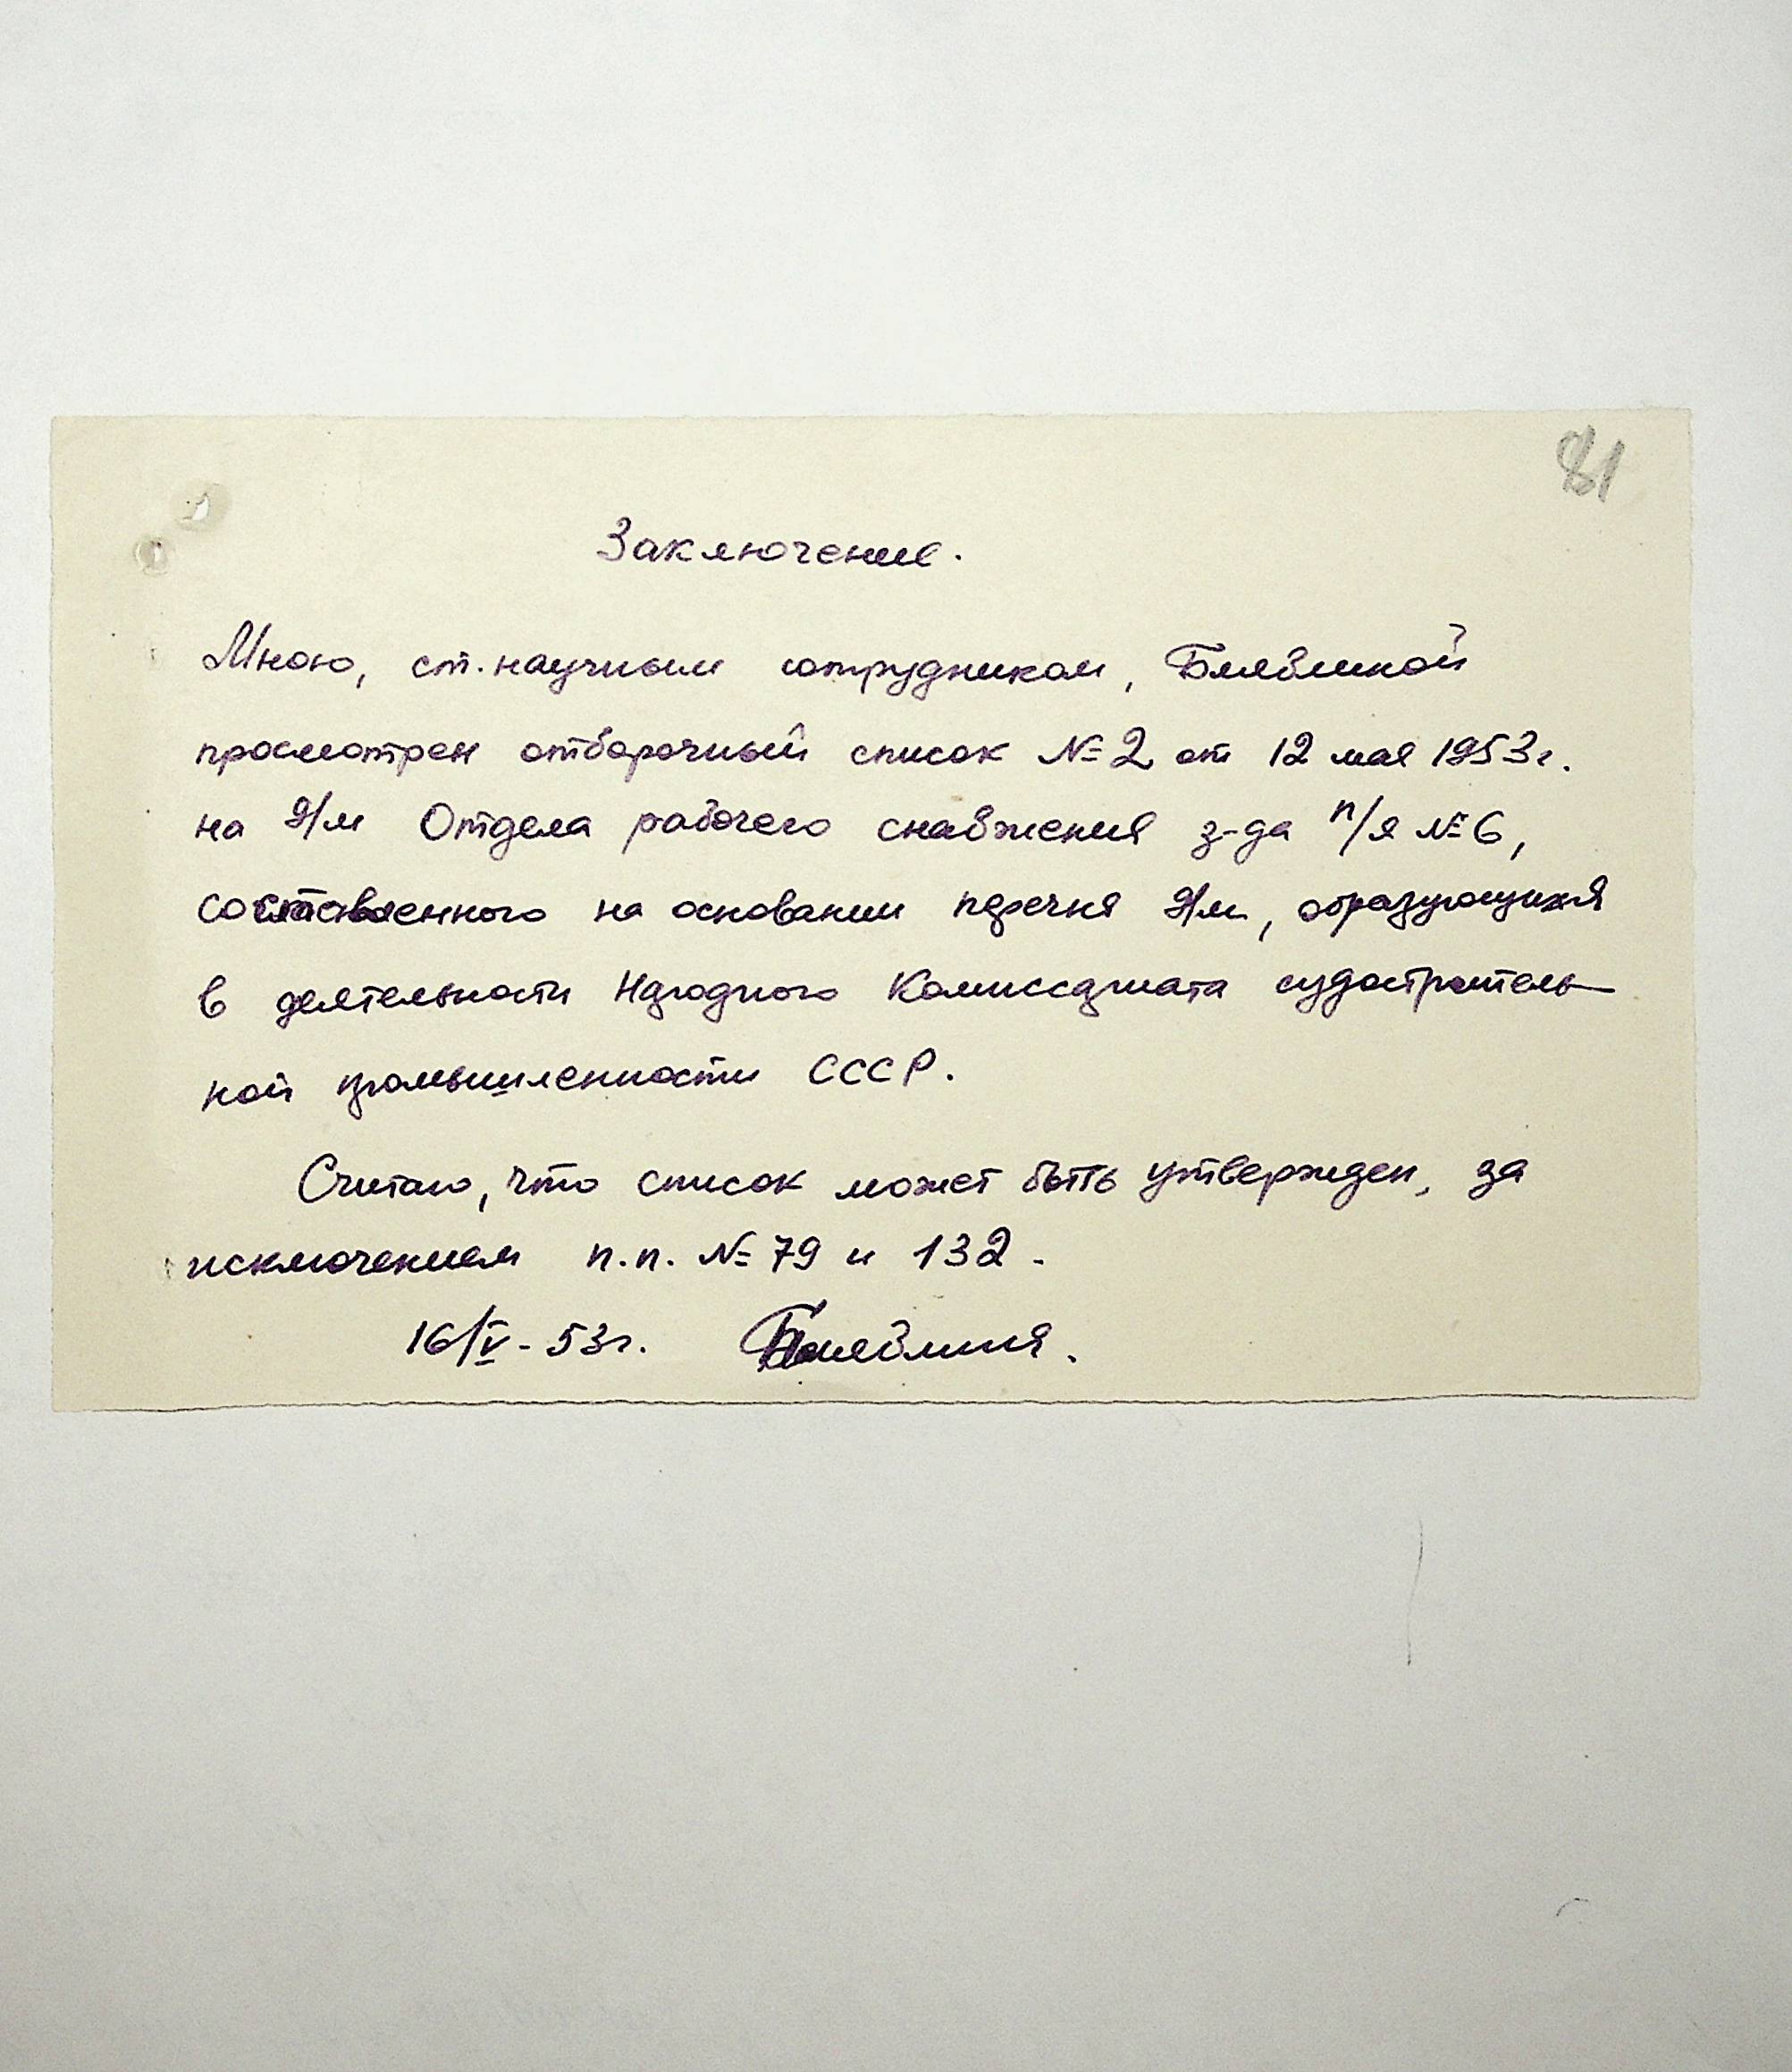 81
Заключение.
Мною, ст. научным сотрудником,
просмотрен отборочный список № 2 от 12 мая 1953 г.
на д/м Отдела рабочего снабжения з-да п/я № 6,
составленного на основании перечня д/м, образующихся
в деятельности Народного Комиссариата судостроитель-
ной промышленности СССР.
Считаю, что список может быть утвержден, за
исключением п.п. № 79 и 132.
16/V - 53 г.